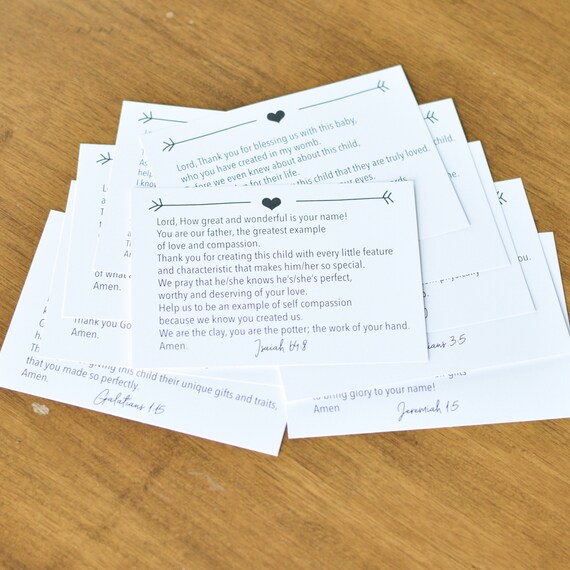 Lord, Thank you for blessing us with this baby,
who you have created in my womb.
we even knew about about this child,
for their life.
this child that they are truly loved.
eyes.
Lord, How great and wonderful is your name!
You are our father, the greatest example
of love and compassion.
Thank you for creating this child with every little feature
and characteristic that makes him/her so special.
We pray that he/she knows he's/she's perfect,
worthy and deserving of your love.
Help us to be an example of self compassion
because we know you created us.
We are the clay, you are the potter; the work of your hand.
Amen.
Isaiah 64:8
As
help
I know
of what
Amen.
Thank you Go
Amen.
giving this child their unique gifts and traits,
that you made so perfectly.
Amen.
Galatians 1:15
child
you.
3:5
gifts
to bring glory to your name!
Amen
Jeremiah 1:5